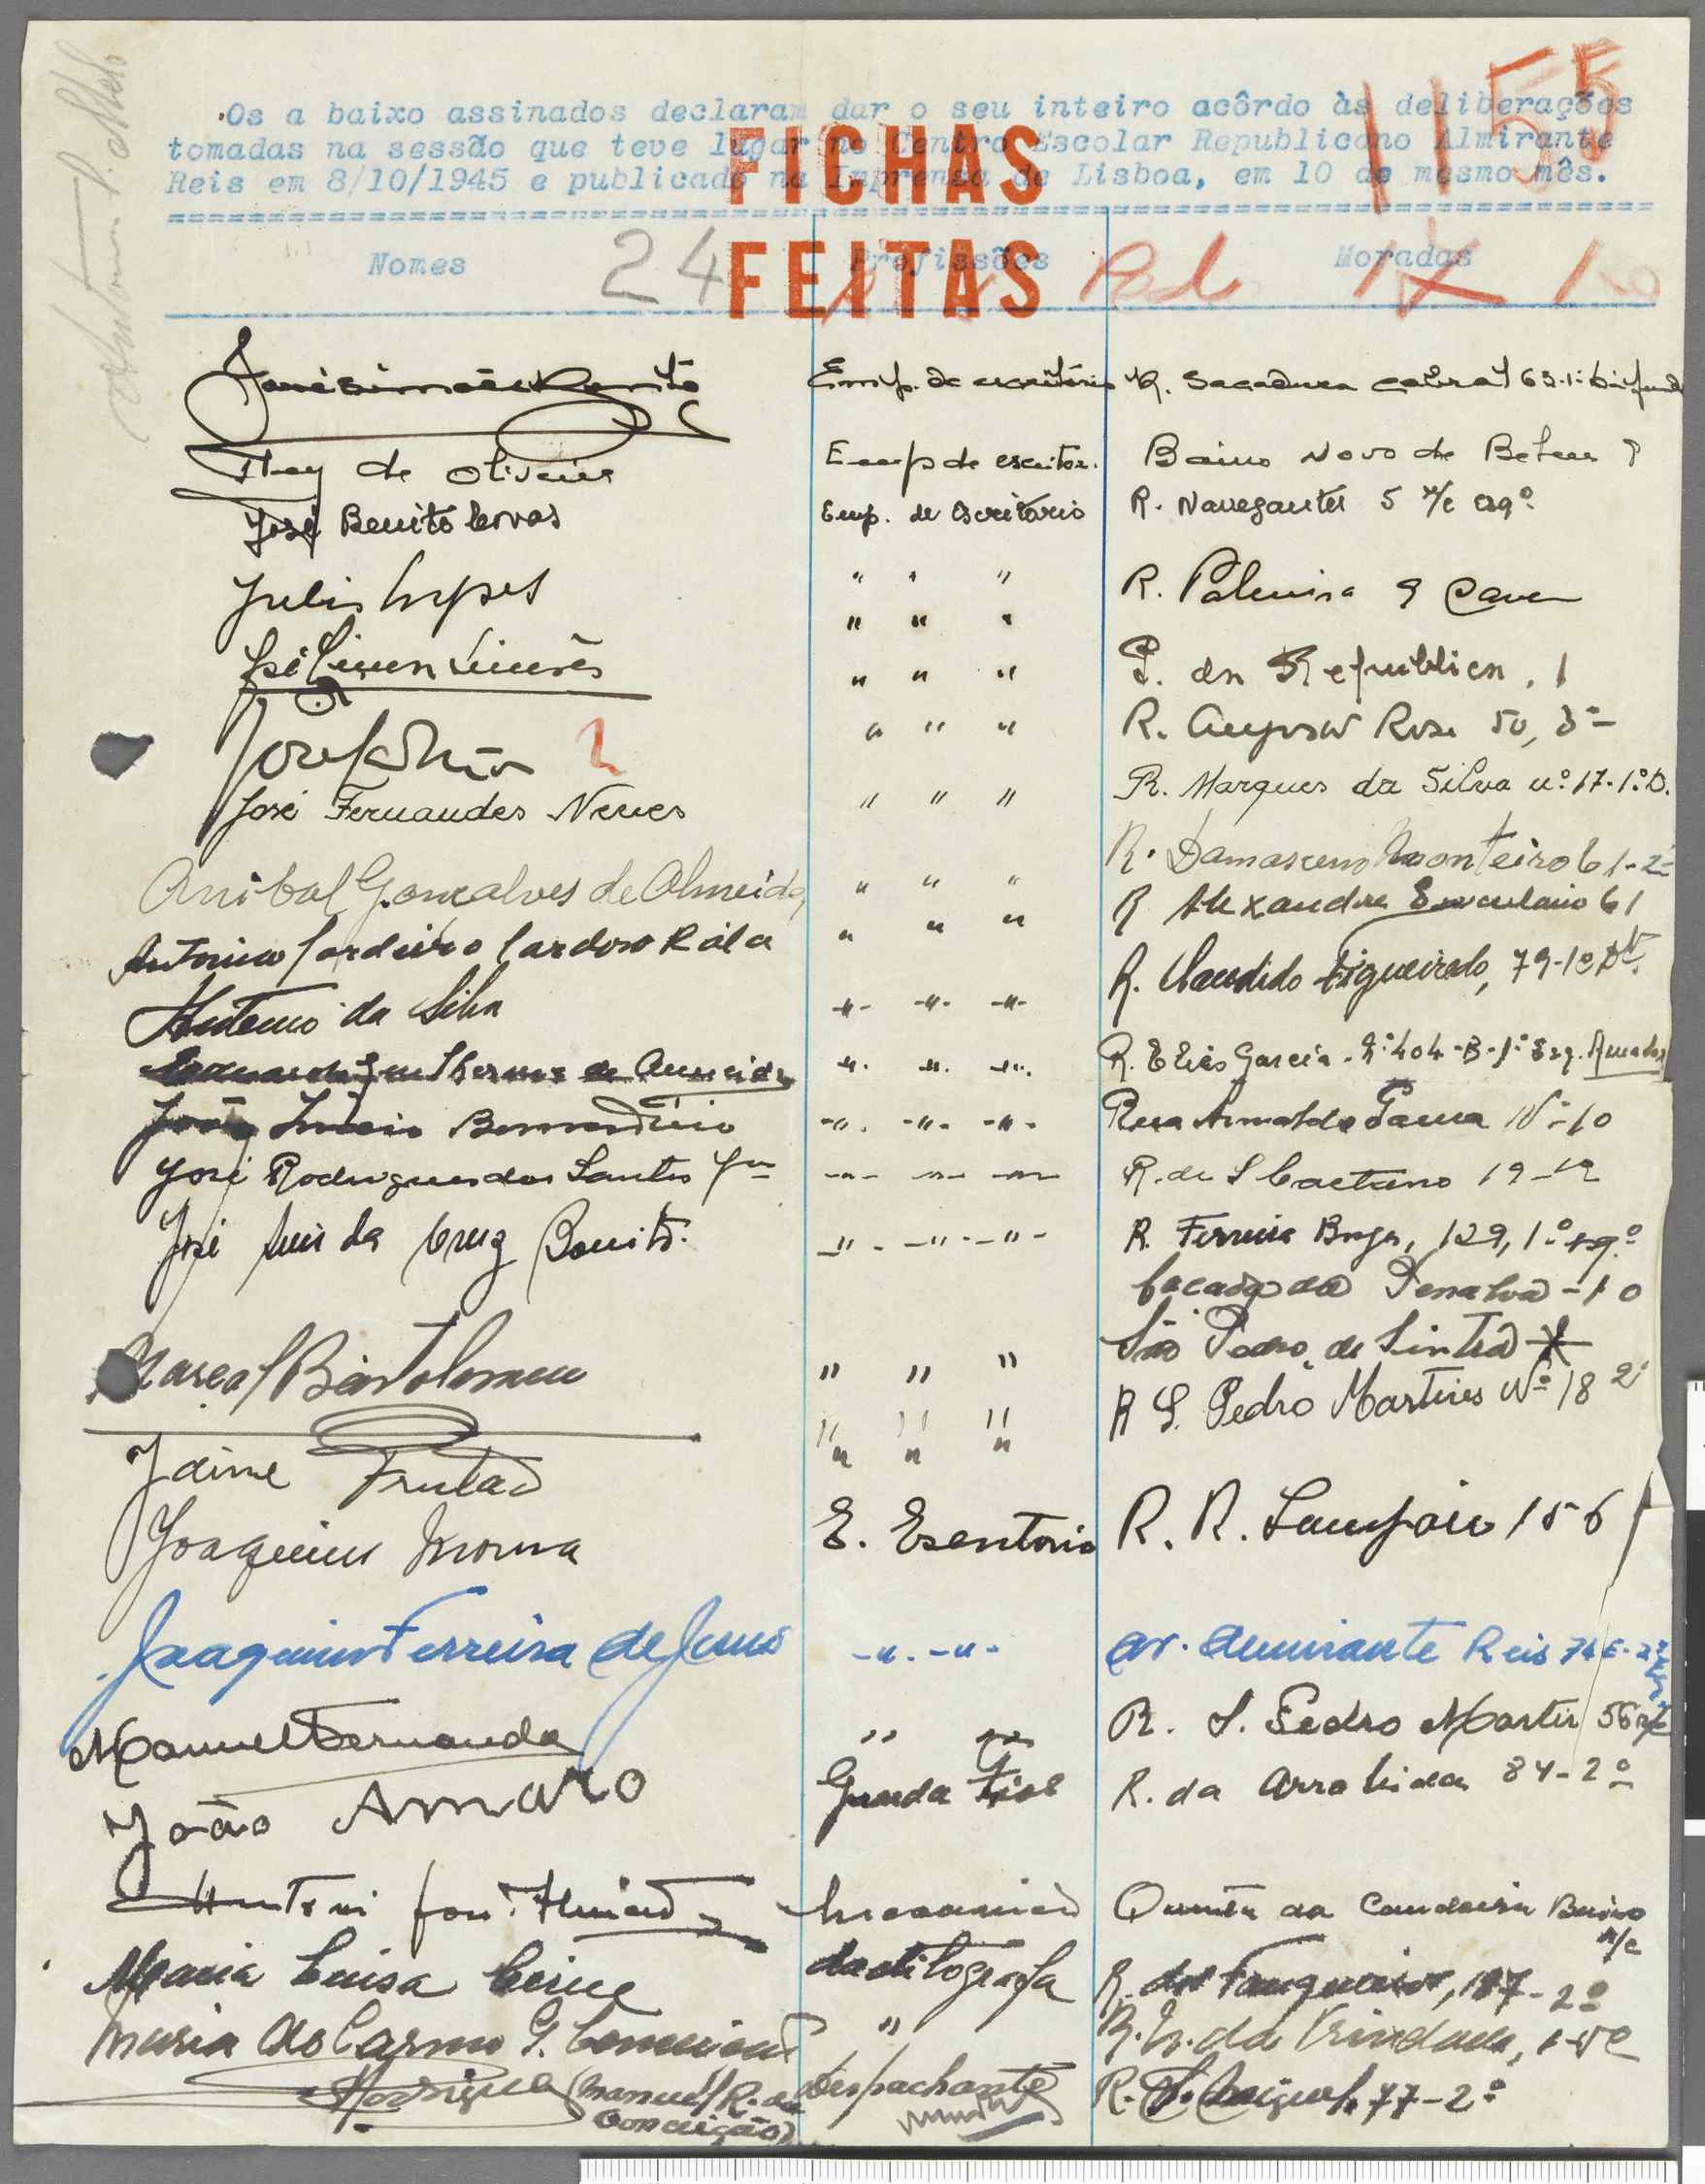 1155
Os a baixo assinados declaram dar o seu inteiro acôrdo às deliberações
tomadas na sessão que teve lugar no Centro Escolar Republicano Almirante
Reis em 8/10/1945 e publicado na Imprensa de Lisboa, em 10 do mesmo mês.
FICHAS
FEITAS
Nomes 24 Profissões Moradas
Emp. de escritório R. Sacadura Cabral 63-1º
Ruy de Oliveira Emp de escritor. Bairro Novo de Belem
José Benito Covas Emp. de Escritorio R. Navegantes 5 r/c esqº
Julio Lopes " " " R. Palmira 9 Cave
" " "
" " " P. da Republica, 1
" " " R. Augusto Rosa 50, 3º
José Fernandes Neves " " " R. Marques da Silva nº 17-1º D.
Anibal Gonçalves de Almeida " " " R. Damasceno Monteiro 61-2º
Antonio Cordeiro Cardoso Rála " " " R Alexandre Herculano 61
Antonio da Silva -"- -"- -"- R. Candido Figueiredo, 79-1º Dt.
Guilherme de Almeida -"- -"- -"- R. Elias Garcia - Nº 404-B-1º Esq. Amadora
João Inácio Bernardino -"- -"- -"- Rua Arnaldo Gama Nº 10
José Rodrigues dos Santos Jor -"- -"- -"- R. de S Caetano 19-1º
José Luis da Cruz Bonito -"- -"- -"- R. Ferreira Borges, 129, 1º esqº
Calçada da Penalva - 10
Marçal Bartolomeu " " " São Pedro de Sintra
" " " R S. Pedro Martires Nº 18 2º
Jaime Furtado " " "
Joaquim Moura E. Escritorio R. R. Sampaio 156
Joaquim Ferreira de Jesus -"- -"- Av. Almirante Reis 74 E-2º
Manuel Fernandes " " R. S. Pedro Martir 56 r/c
João Amaro Guarda Fios R. da Arrabida 84-2º
Mecanico Quinta da Candeeira Bairro
r/c
Maria Luisa dactilografa R. dos Fanqueiros, 187-2º
Maria do Carmo G. " R. N. da Trindade, 1-r/c
Rodrigues (Manuel R. da Conceição) Despachante R. S. Miguel, 77-2º